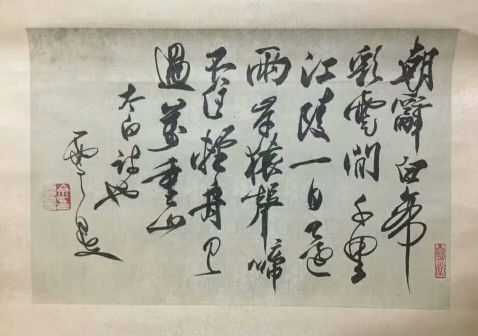 朝辭白帝
彩雲間千里
江陵一日還
兩岸猿聲啼
不住輕舟已
過萬重山
太白詩也